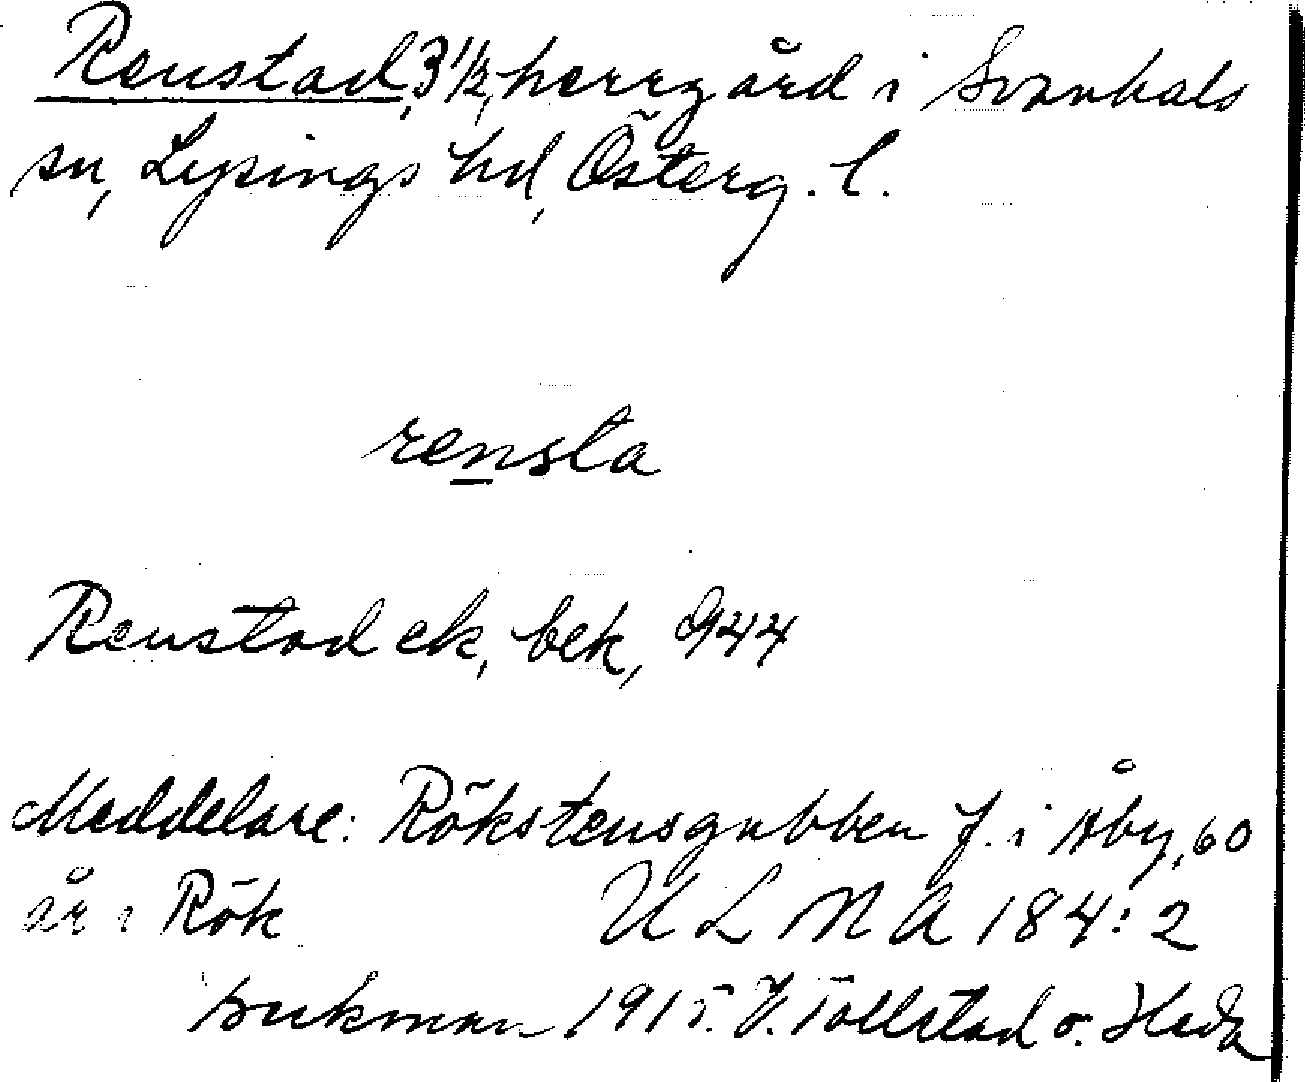 Renstad, 3 1/2, herrgård i Svanhals
sn, Lysings hd, Österg. l.
rensta
Renstad ek, bek, 944
Meddelare: Rökstensgubben f. i Åby, 60
år i Rök
ULMA 184:2
1915. V. Tollstad o. Heda